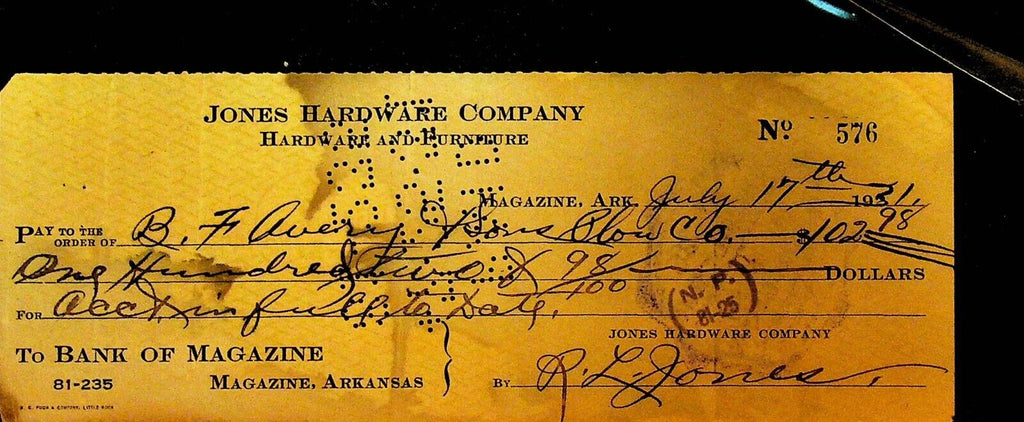 JONES HARDWARE COMPANY
HARDWARE AND FURNITURE
Nº 576
MAGAZINE, ARK. July 17th 1931.
PAY TO THE ORDER OF B. F Avery & Sons Plow Co. $102 98
One Hundred Two & 98/100 DOLLARS
FOR Acct. in full to Date.
(N. P.)
81-25
JONES HARDWARE COMPANY
TO BANK OF MAGAZINE
81-235
MAGAZINE, ARKANSAS
BY R. L. Jones.